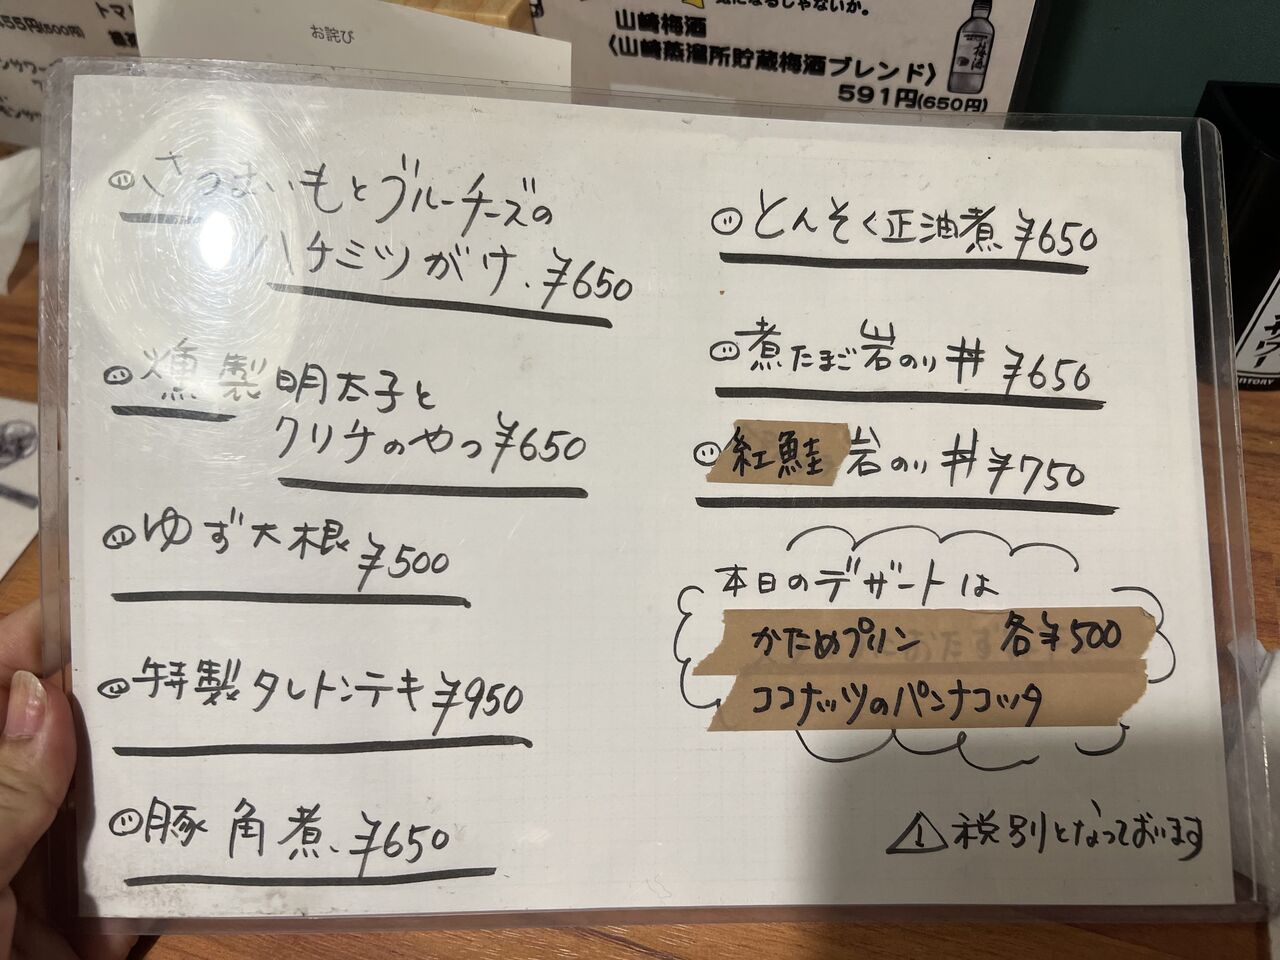 お詫び
気になるじゃないか。
山崎梅酒
〈山崎蒸溜所貯蔵梅酒ブレンド〉
591円(650円)
さつまいもとブルーチーズの
ハチミツがけ、¥650
燻製明太子と
クリチのやつ¥650
ゆず大根¥500
特製タレトンテキ¥950
豚角煮、¥650
とんそく正油煮¥650
煮たまご岩のり丼¥650
紅鮭岩のり丼¥750
本日のデザートは
かためプリン 各¥500
ココナッツのパンナコッタ
税別となっております